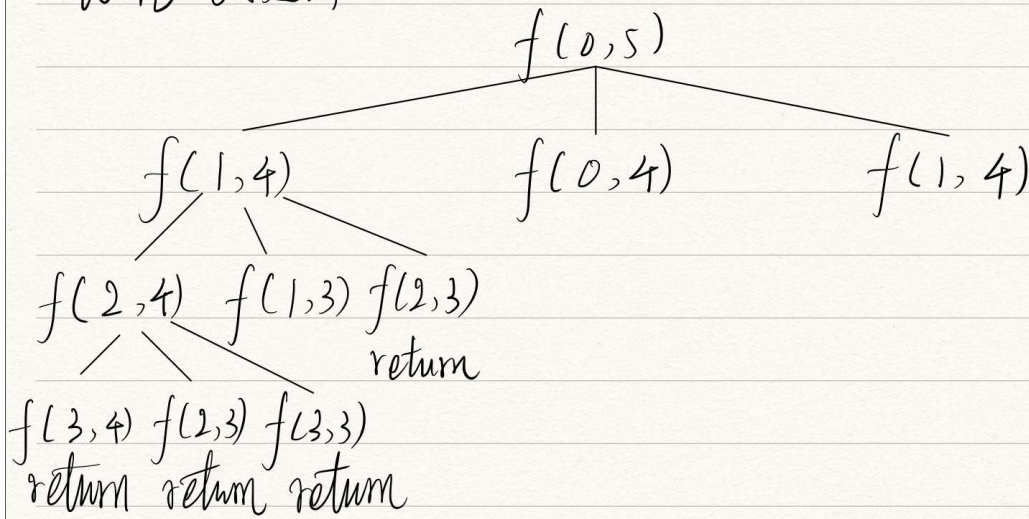 f(0,5)
f(1,4) f(0,4) f(1,4)
f(2,4) f(1,3) f(2,3)
return
f(3,4) f(2,3) f(3,3)
return return return